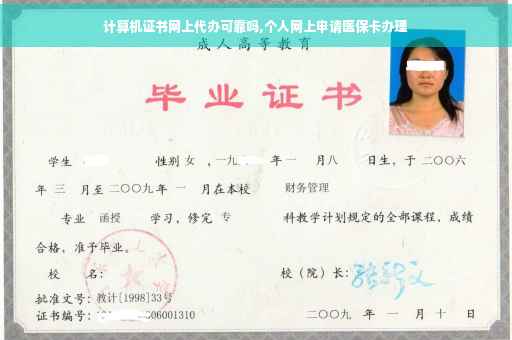 计算机证书网上代办可靠吗,个人网上申请医保卡办理
成人高等教育
毕业证书
学生 性别 女 ，一九 年 一 月八 日生，于 二〇〇六
年 三 月至 二〇〇九 年 一 月在本校 财务管理
专业 函授 学习，修完 专 科教学计划规定的全部课程，成绩
合格，准予毕业。
校 名： 校（院）长：
批准文号：教计[1998]33号
证书编号： 06001310 二〇〇九 年 一 月 十 日